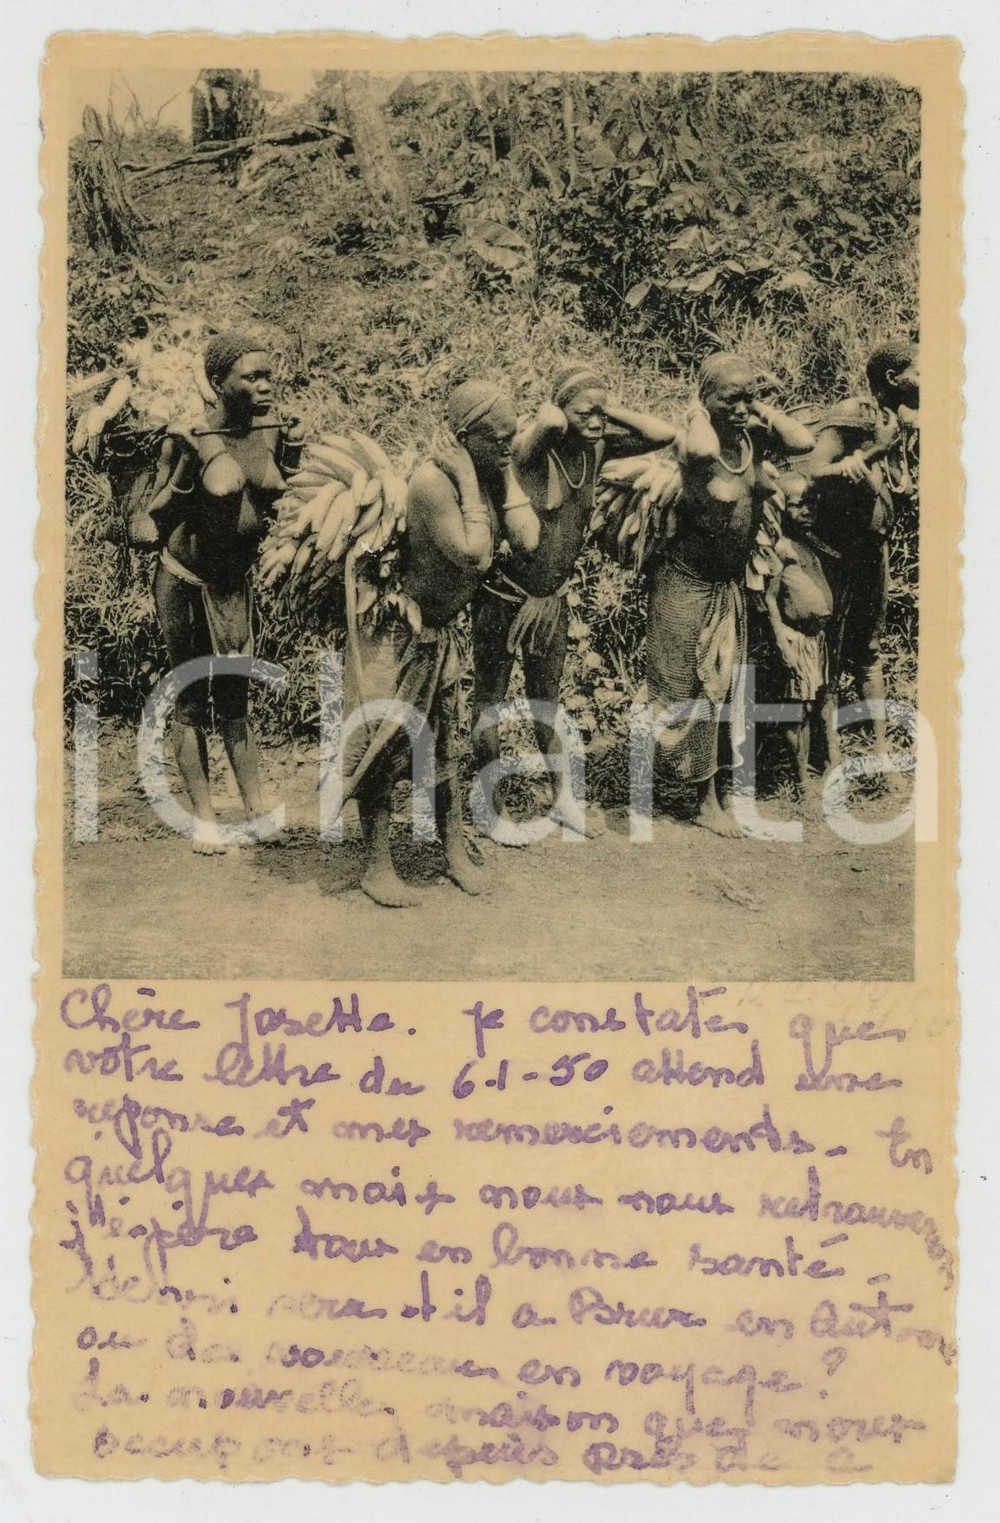 iCharta
Chère Josette. je constate que
votre lettre du 6-1-50 attend une
réponse et mes remerciements - En
quelques mois nous nous retrouverons
j'espère tous en bonne santé -
sera-t-il a Brux en Automne
ou de nouveau en voyage?
La nouvelle maison que nous
occupons depuis près de 2